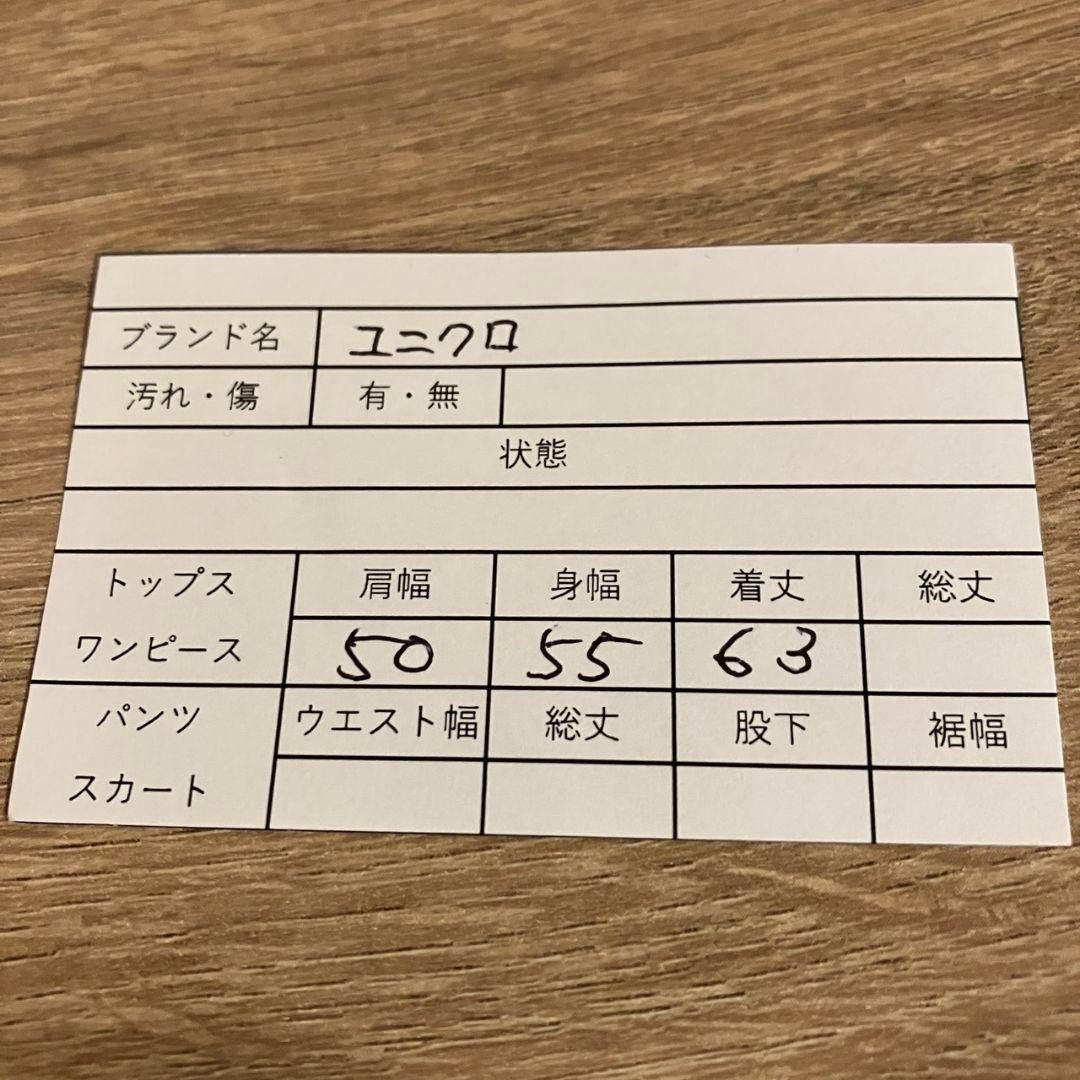 ブランド名 ユニクロ
汚れ・傷 有・無
状態
トップス 肩幅 身幅 着丈 総丈
ワンピース 50 55 63
パンツ ウエスト幅 総丈 股下 裾幅
スカート